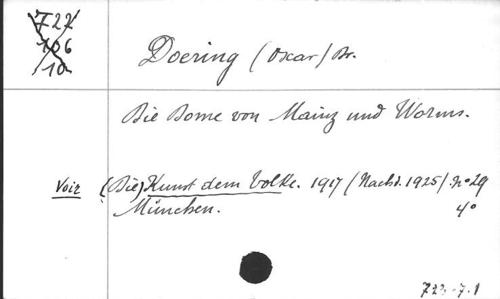 722
106
10
Doering (Oscar) Dr.
Die Dome von Mainz und Worms.
Voir (Die) Kunst dem Volke. 1917 (Nachd. 1925). nº 29
München. 4º